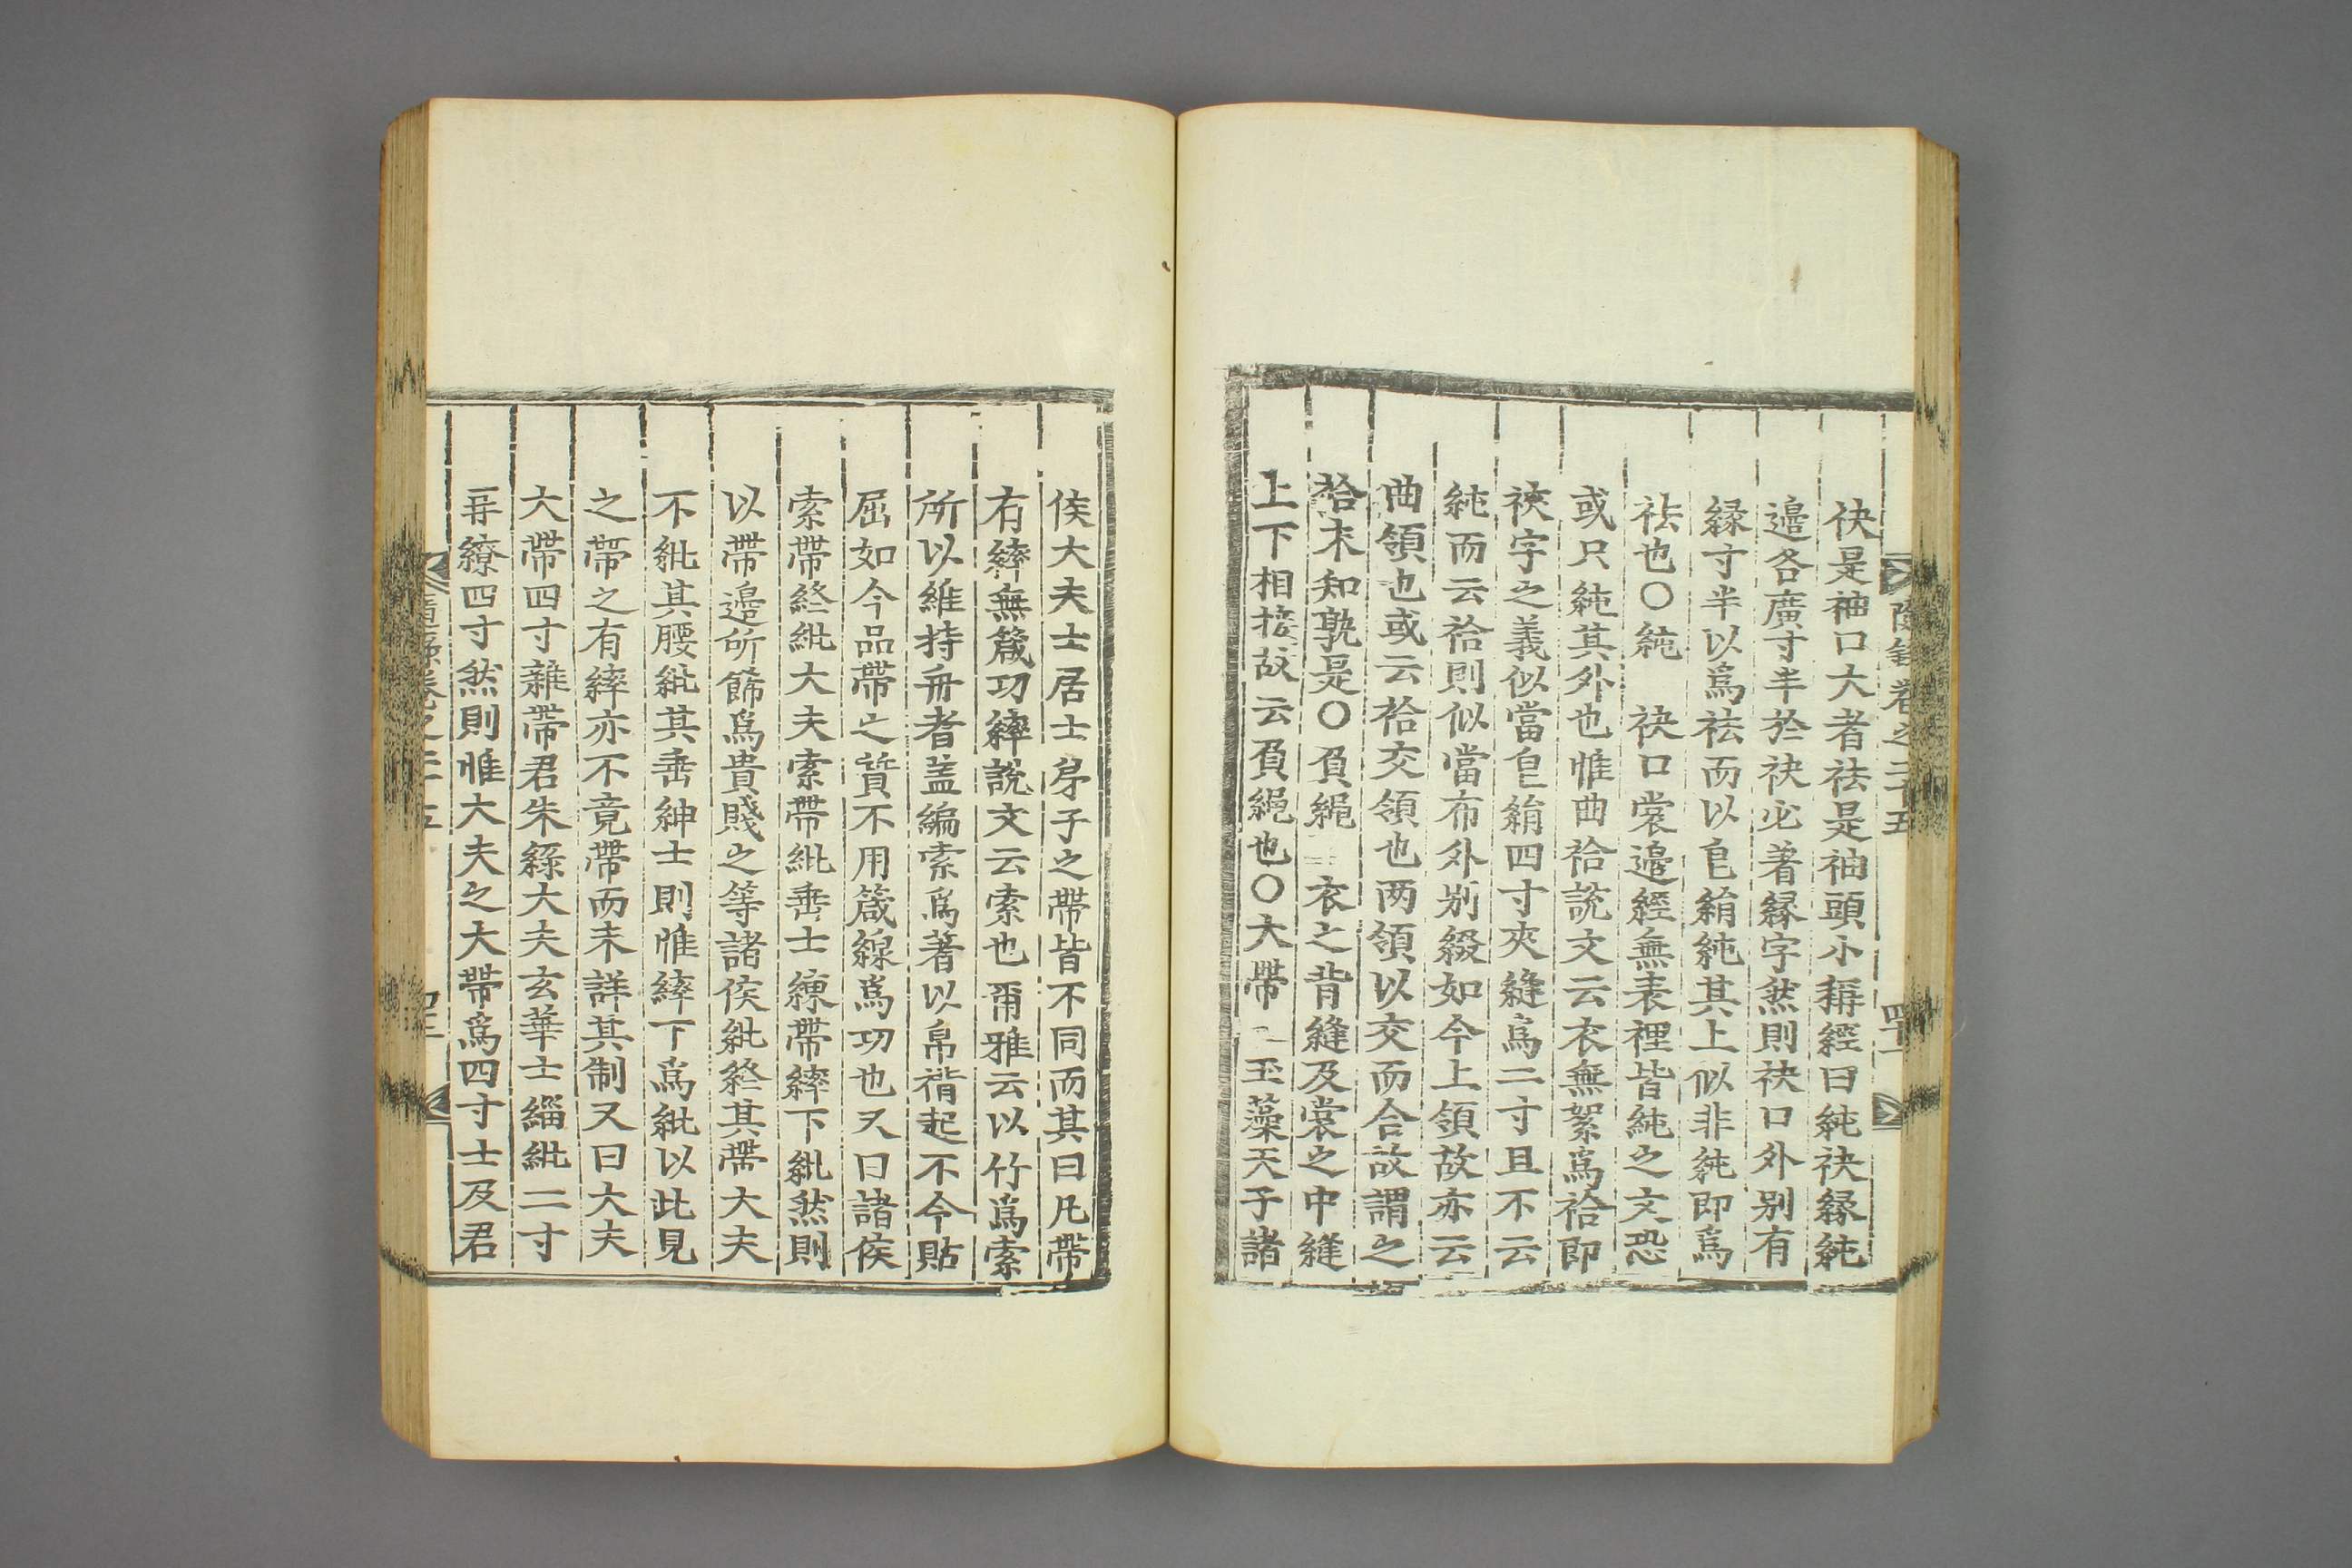 袂是袖口大者袪是袖頭小稱經曰純袂緣純
邉各廣寸半扵袂必著緣字然則袂口外別有
緣寸半以爲袪而以皀絹純其上似非純即爲
袪也〇純　袂口裳邉經無表裡皆純之文恐
或只純其外也惟曲袷說文云衣無絮爲袷即
袂字之義似當皀絹四寸夾縫爲二寸且不云
純而云袷則似當布外別綴如今上領故亦云
曲領也或云袷交領也两領以交而合故謂之
袷未知孰是〇負繩　衣之背縫及裳之中縫
上下相接故云負繩也〇大帶　玉藻天子諸
侯大夫士居士弟子之帶皆不同而其曰凡帶
有繂無箴功繂說文云索也爾雅云以竹爲索
所以維持舟者盖編索爲著以帛褙起不令貼
屈如今品帶之質不用箴線爲功也又曰諸侯
索帶終紕大夫索帶紕垂士練帶繂下紕然則
以帶邉所餙爲貴賤之等諸侯紕終其帶大夫
不紕其腰紕其垂紳士則惟繂下爲紕以此見
之帶之有繂亦不竟帶而未詳其制又曰大夫
大帶四寸雜帶君朱綠大夫玄華士緇紕二寸
再繚四寸然則惟大夫之大帶爲四寸士及君